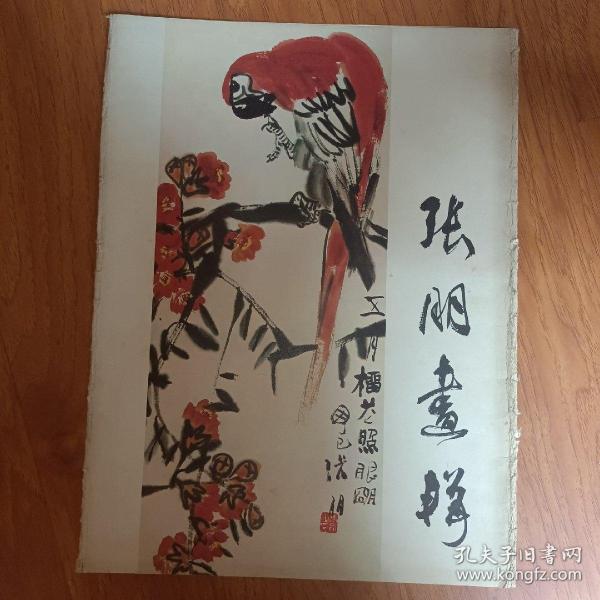 张朋畫辑
五月榴花照眼明
张朋
孔夫子旧书网
www.kongfz.com